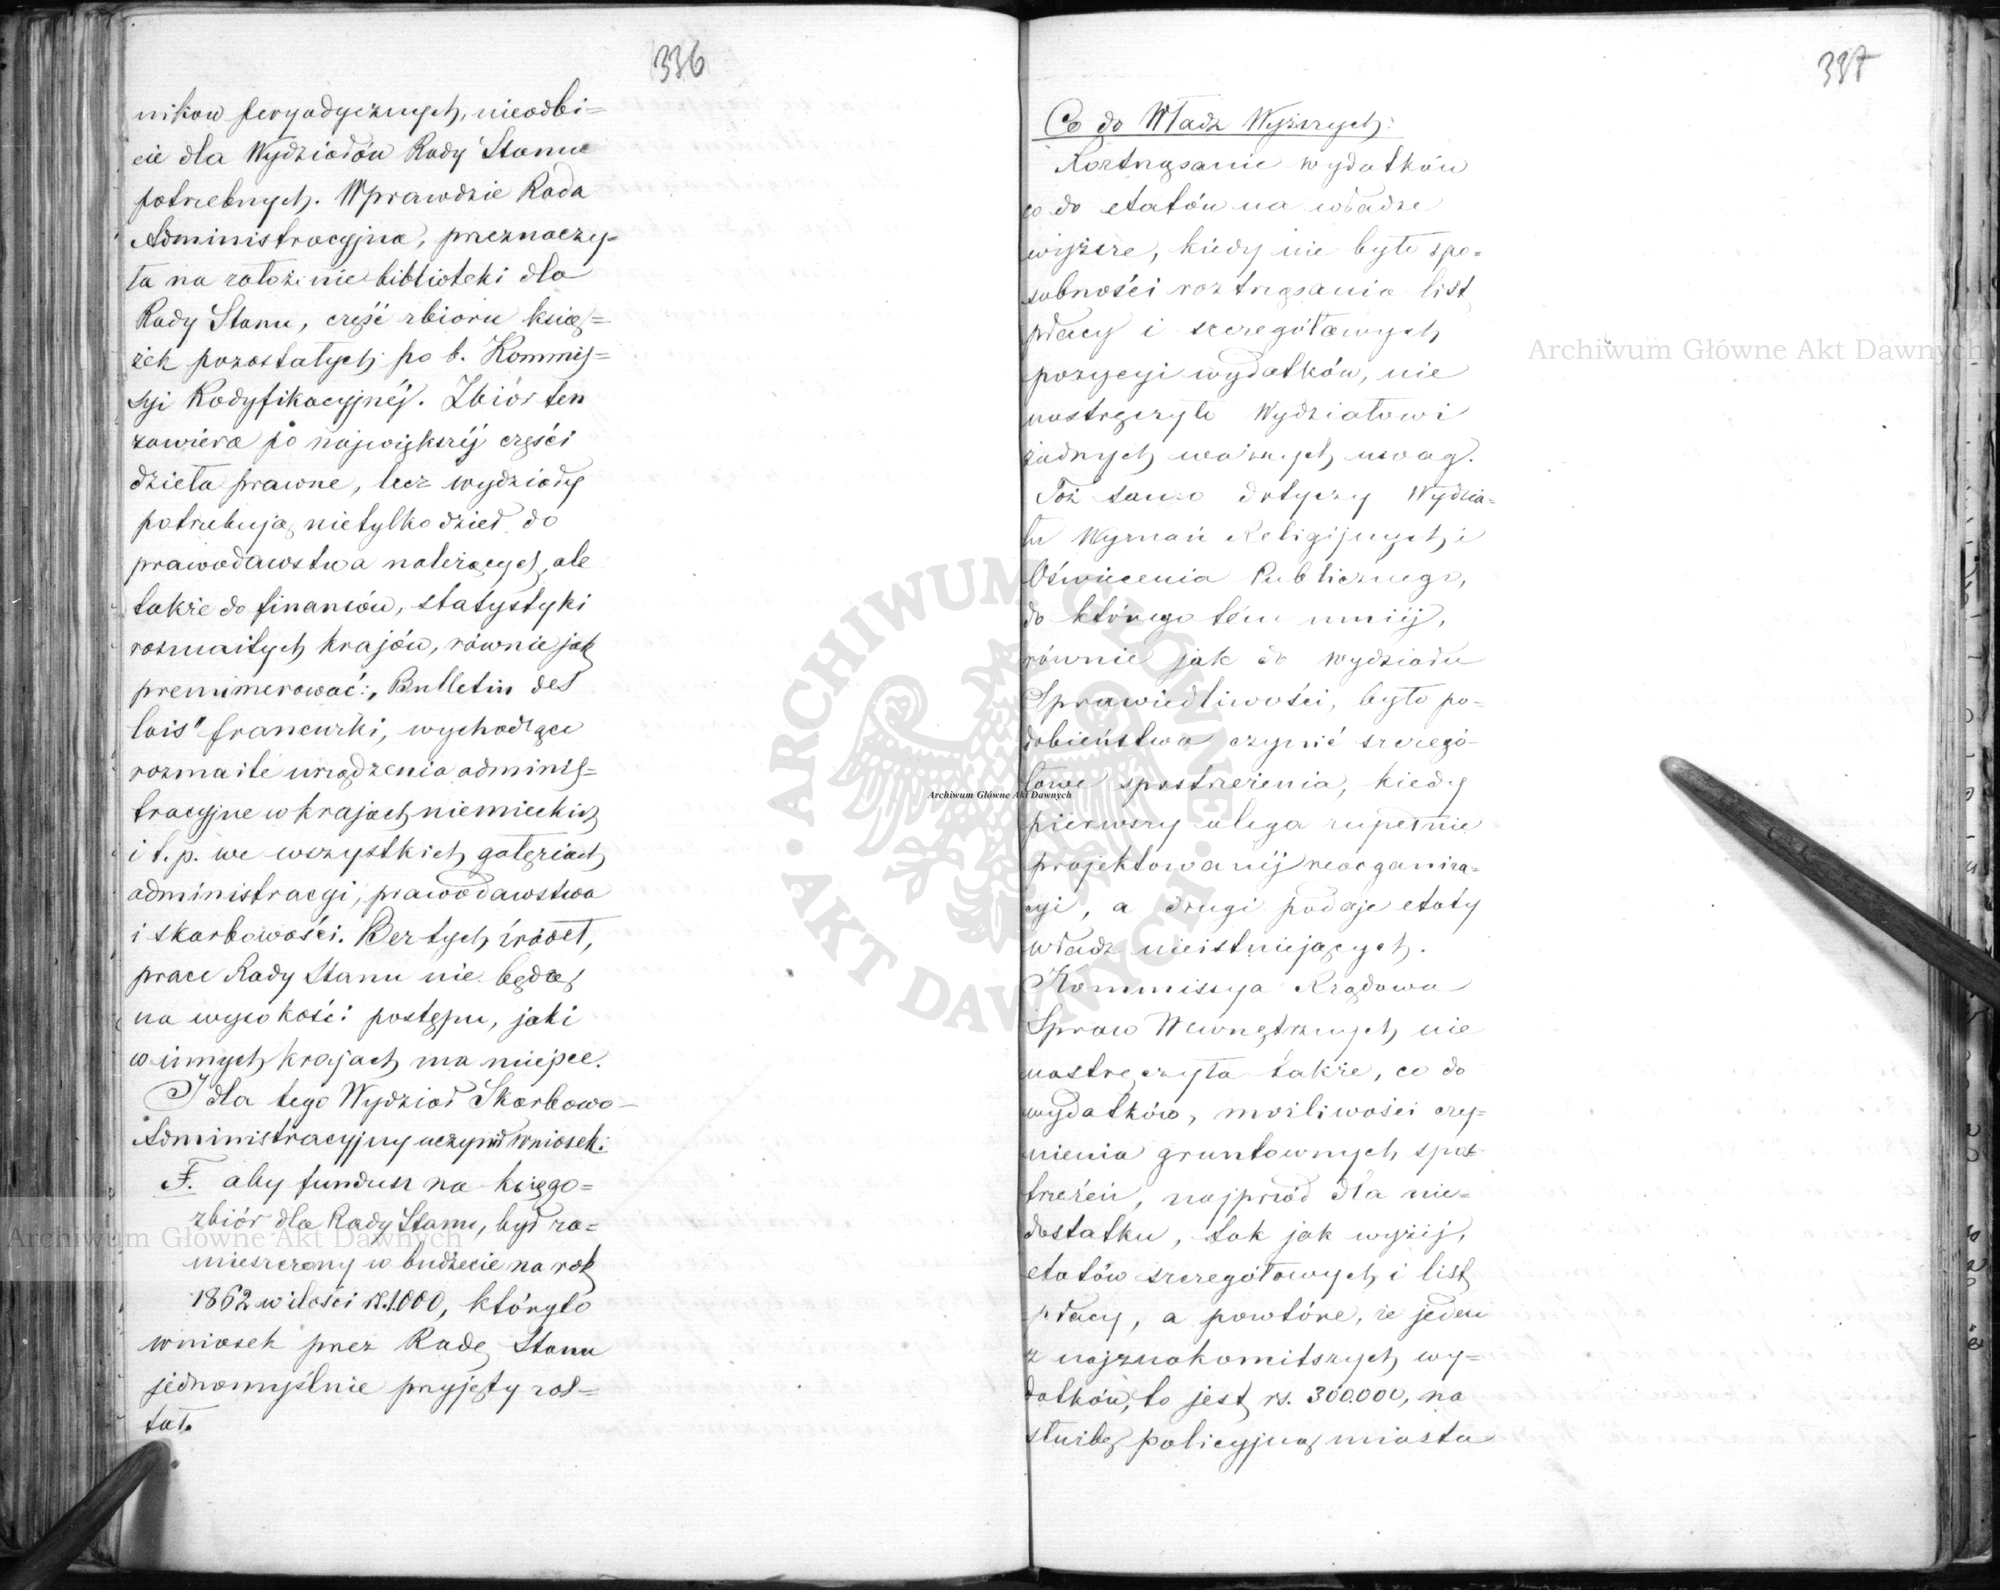 336
ników peryodycznych, nieodbi=
cie dla Wydziałów Rady Stanu
potrzebnych. Wprawdzie Rada
Administracyjna, przeznaczy=
ła na założenie biblioteki dla
Rady Stanu, część zbioru ksią=
żek pozostałych po b. Kommis=
syi Kodyfikacyjnéj. Zbiór ten
zawiera po największéj części
dzieła prawne, lecz wydziały
potrzebują nietylko dzieł do
prawodawstwa należących, ale
także do finansów, statystyki
rozmaitych krajów, równie jak
prenumerować: „Bulletin des
lois" francuzki, wychodzące
rozmaite urządzenia adminis=
tracyjne w krajach niemieckich
i t. p. we wszystkich gałęziach
administracyi, prawodawstwa
i skarbowości. Bez tych źródeł,
prace Rady Stanu nie będą
na wysokości postępu, jaki
w innych krajach ma miejsce.
I dla tego Wydział Skarbowo-
Administracyjny uczynił wniosek:
F. aby fundusz na księgo=
zbiór dla Rady Stanu, był za=
mieszczony w budżecie na rok
1862 w ilości rs. 1.000, któryto
wniosek przez Radę Stanu
jednomyślnie przyjęty zos=
tał.
337
Co do Władz Wyższych:
Roztrząsanie wydatków
co do etatów na władze
wyższe, kiedy nie było spo=
sobności roztrząsania list
płacy i szczegółowych
pozycyi wydatków, nie
nastręczyło Wydziałowi
żadnych ważnych uwag.
Toż samo dotyczy Wydzia=
łu Wyznań Religijnych i
Oświecenia Publicznego,
do którego tém mniéj,
równie jak do Wydziału
Sprawiedliwości, było po=
dobieństwo czynić szczegó=
łowe spostrzeżenia, kiedy
pierwszy ulega zupełnie
projektowanéj reorganiza=
cyi, a drugi podaje etaty
władz nieistniejących.
Kommissya Rządowa
Spraw Wewnętrznych nie
nastręczyła także, co do
wydatków, możliwości czy=
nienia gruntownych spos=
trzeżeń, najprzód dla nie=
dostatku, tak jak wyżéj,
etatów szczegółowych i list
płacy, a powtóre, że jeden
z najznakomitszych wy=
datków, to jest rs. 300.000, na
służbę policyjną miasta
Archiwum Główne Akt Dawnych
Archiwum Główne Akt Dawnych
Archiwum Główne Akt Dawnych
ARCHIWUM GŁÓWNE · AKT DAWNYCH ·